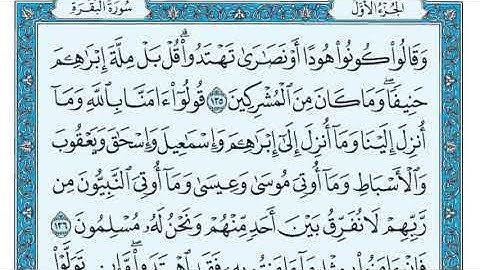 سُورَةُ البَقَرَةِ
الجُزْءُ الأَوَّلُ
وَقَالُواْ كُونُواْ هُودًا أَوْ نَصَٰرَىٰ تَهْتَدُواْۗ قُلْ بَلْ مِلَّةَ إِبْرَٰهِـۧمَ
حَنِيفًاۖ وَمَا كَانَ مِنَ ٱلْمُشْرِكِينَ ۝١٣٥ قُولُوٓاْ ءَامَنَّا بِٱللَّهِ وَمَآ
أُنزِلَ إِلَيْنَا وَمَآ أُنزِلَ إِلَىٰٓ إِبْرَٰهِـۧمَ وَإِسْمَٰعِيلَ وَإِسْحَٰقَ وَيَعْقُوبَ
وَٱلْأَسْبَاطِ وَمَآ أُوتِىَ مُوسَىٰ وَعِيسَىٰ وَمَآ أُوتِىَ ٱلنَّبِيُّونَ مِن
رَّبِّهِمْ لَا نُفَرِّقُ بَيْنَ أَحَدٍ مِّنْهُمْ وَنَحْنُ لَهُۥ مُسْلِمُونَ ۝١٣٦
فَإِنْ ءَامَنُواْ بِمِثْلِ مَآ ءَامَنتُم بِهِۦ فَقَدِ ٱهْتَدَواْۖ وَّإِن تَوَلَّوْاْ